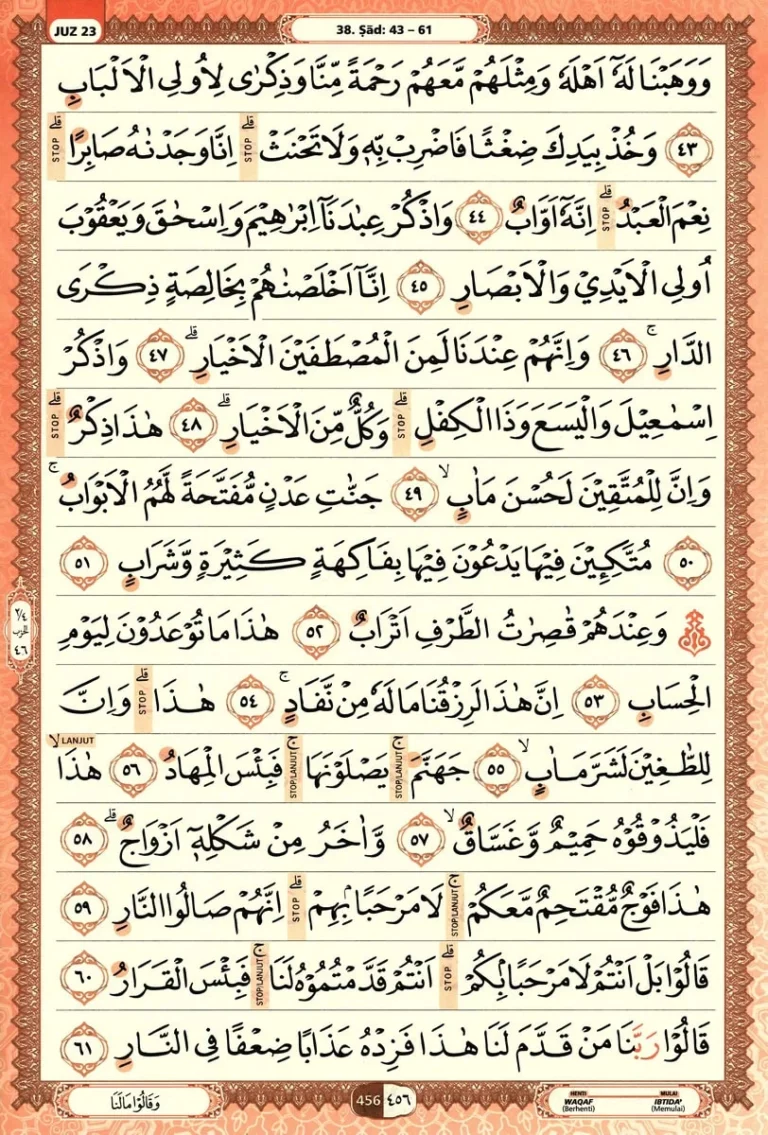 JUZ 23
38. Ṣād: 43 – 61
وَوَهَبْنَا لَهٗٓ اَهْلَهٗ وَمِثْلَهُمْ مَّعَهُمْ رَحْمَةً مِّنَّا وَذِكْرٰى لِاُولِى الْاَلْبَابِ
٤٣ وَخُذْ بِيَدِكَ ضِغْثًا فَاضْرِبْ بِّهٖ وَلَا تَحْنَثْ ۗ STOP اِنَّا وَجَدْنٰهُ صَابِرًا ۗ STOP
نِعْمَ الْعَبْدُ ۗ STOP اِنَّهٗٓ اَوَّابٌ ٤٤ وَاذْكُرْ عِبٰدَنَآ اِبْرٰهِيْمَ وَاِسْحٰقَ وَيَعْقُوْبَ
اُولِى الْاَيْدِيْ وَالْاَبْصَارِ ٤٥ اِنَّآ اَخْلَصْنٰهُمْ بِخَالِصَةٍ ذِكْرَى
الدَّارِۚ ٤٦ وَاِنَّهُمْ عِنْدَنَا لَمِنَ الْمُصْطَفَيْنَ الْاَخْيَارِۗ ٤٧ وَاذْكُرْ
اِسْمٰعِيْلَ وَالْيَسَعَ وَذَا الْكِفْلِ ۗ STOP وَكُلٌّ مِّنَ الْاَخْيَارِۗ ٤٨ هٰذَا ذِكْرٌ ۗ STOP
وَاِنَّ لِلْمُتَّقِيْنَ لَحُسْنَ مَاٰبٍۙ ٤٩ جَنّٰتِ عَدْنٍ مُّفَتَّحَةً لَّهُمُ الْاَبْوَابُۚ
٥٠ مُتَّكِـِٕيْنَ فِيْهَا يَدْعُوْنَ فِيْهَا بِفَاكِهَةٍ كَثِيْرَةٍ وَّشَرَابٍ ٥١
۞ وَعِنْدَهُمْ قٰصِرٰتُ الطَّرْفِ اَتْرَابٌ ٥٢ هٰذَا مَا تُوْعَدُوْنَ لِيَوْمِ
٢/٤ الحزب ٤٦
الْحِسَابِ ٥٣ اِنَّ هٰذَا لَرِزْقُنَا مَا لَهٗ مِنْ نَّفَادٍۚ ٥٤ هٰذَا ۗ STOP وَاِنَّ
لِلطّٰغِيْنَ لَشَرَّ مَاٰبٍۙ ٥٥ جَهَنَّمَ ۚ STOP/LANJUT يَصْلَوْنَهَا ۚ STOP/LANJUT فَبِئْسَ الْمِهَادُ ٥٦ هٰذَا ۙ LANJUT
فَلْيَذُوْقُوْهُ حَمِيْمٌ وَّغَسَّاقٌۙ ٥٧ وَّاٰخَرُ مِنْ شَكْلِهٖٓ اَزْوَاجٌۗ ٥٨
هٰذَا فَوْجٌ مُّقْتَحِمٌ مَّعَكُمْ ۚ STOP/LANJUT لَا مَرْحَبًاۢ بِهِمْ ۗ STOP اِنَّهُمْ صَالُوا النَّارِ ٥٩
قَالُوْا بَلْ اَنْتُمْ لَا مَرْحَبًاۢ بِكُمْ ۗ STOP اَنْتُمْ قَدَّمْتُمُوْهُ لَنَا ۚ STOP/LANJUT فَبِئْسَ الْقَرَارُ ٦٠
قَالُوْا رَبَّنَا مَنْ قَدَّمَ لَنَا هٰذَا فَزِدْهُ عَذَابًا ضِعْفًا فِى النَّارِ ٦١
وَقَالُوْا مَا لَنَا
456 ٤٥٦
HENTI MULAI
WAQAF IBTIDA'
(Berhenti) (Memulai)